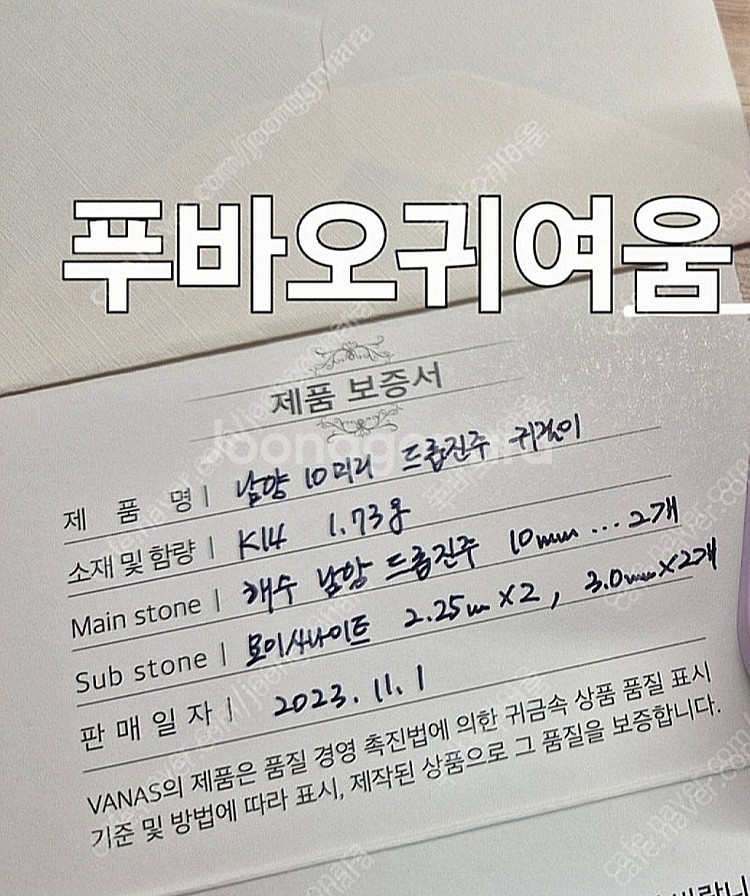 푸바오귀여움_
제품 보증서
제 품 명 | 남양 10미리 드롭진주 귀걸이
소재 및 함량 | K14 1.73g
Main stone | 해수 남양 드롭진주 10mm ... 2개
Sub stone | 모이사나이트 2.25mm X 2, 3.0mm X 2개
판 매 일 자 | 2023. 11. 1
VANAS의 제품은 품질 경영 촉진법에 의한 귀금속 상품 품질 표시
기준 및 방법에 따라 표시, 제작된 상품으로 그 품질을 보증합니다.
Joonggonara